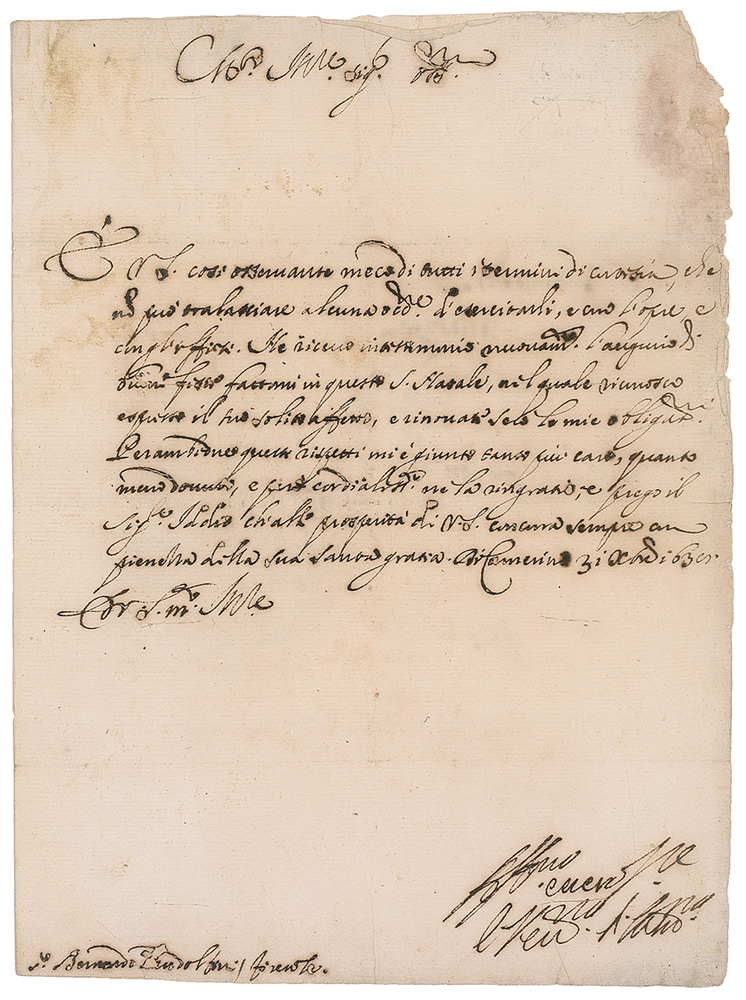 Ill.re Sig.r
È V.S. così osservante meco di tutti i termini di cortesia, che
nō può tralasciare alcuna occ.ne d'esercitarli, e con l'opre, e
con gl'uffitij. Ne ricevo in testimonio nuovam.te l'augurio di
fattomi in questo S. Natale, nel quale riconosco
il suo solito affetto, e le mie obligat.ni
Per ambidue questi rispetti mi è giunto tanto più caro, quanto
meno dovuto, e cordialità ne la ringratio, e prego il
Sig.re Iddio ch'alle prosperità di V.S. concorra sempre con
pienezza della sua santa gratia. Di Camerino 31 Xbre
Di V.S. m.to Ill.re
Aff.mo
S.r Bernardo Pandolfini / Firenze.